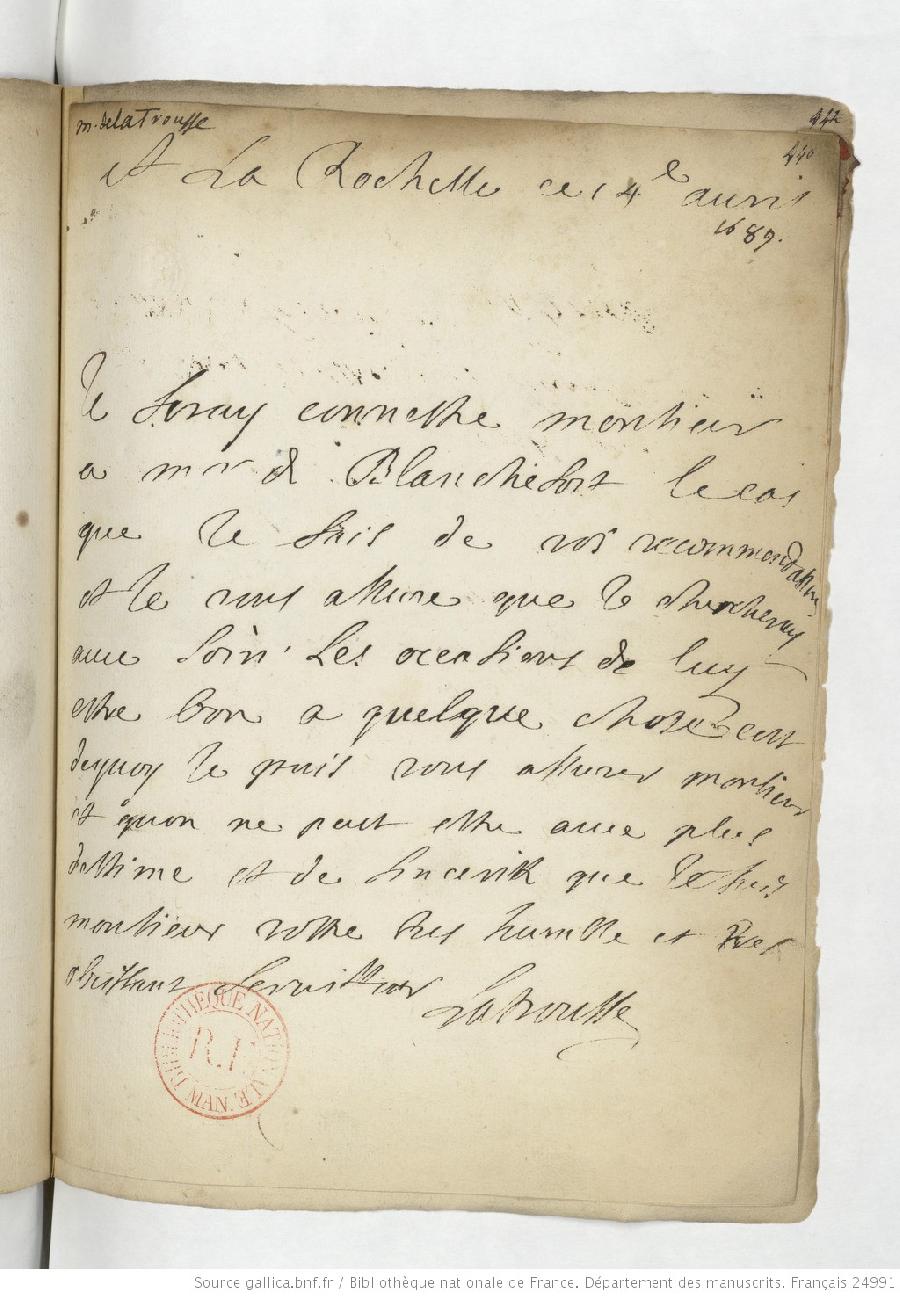 m. de la Trousse
442
440
A La Rochelle ce 14e auril
1689.
Je feray connestre monsieur
a mr de Blanchefort le cas
que Je fais de vos recommendations
et Je vous assure que Je chercheray
auec soin les occasions de luy
estre bon a quelque chose cest
dequoy Je puis vous assurer monsieur
et quon ne peut estre auec plus
destime et de sincerité que Je suis
monsieur vostre tres humble et tres
obeissant seruiteur
Latrousse
BIBLIOTHEQUE NATIONALE
R.F.
MAN.
Source gallica.bnf.fr / Bibliothèque nationale de France. Département des manuscrits. Français 24991